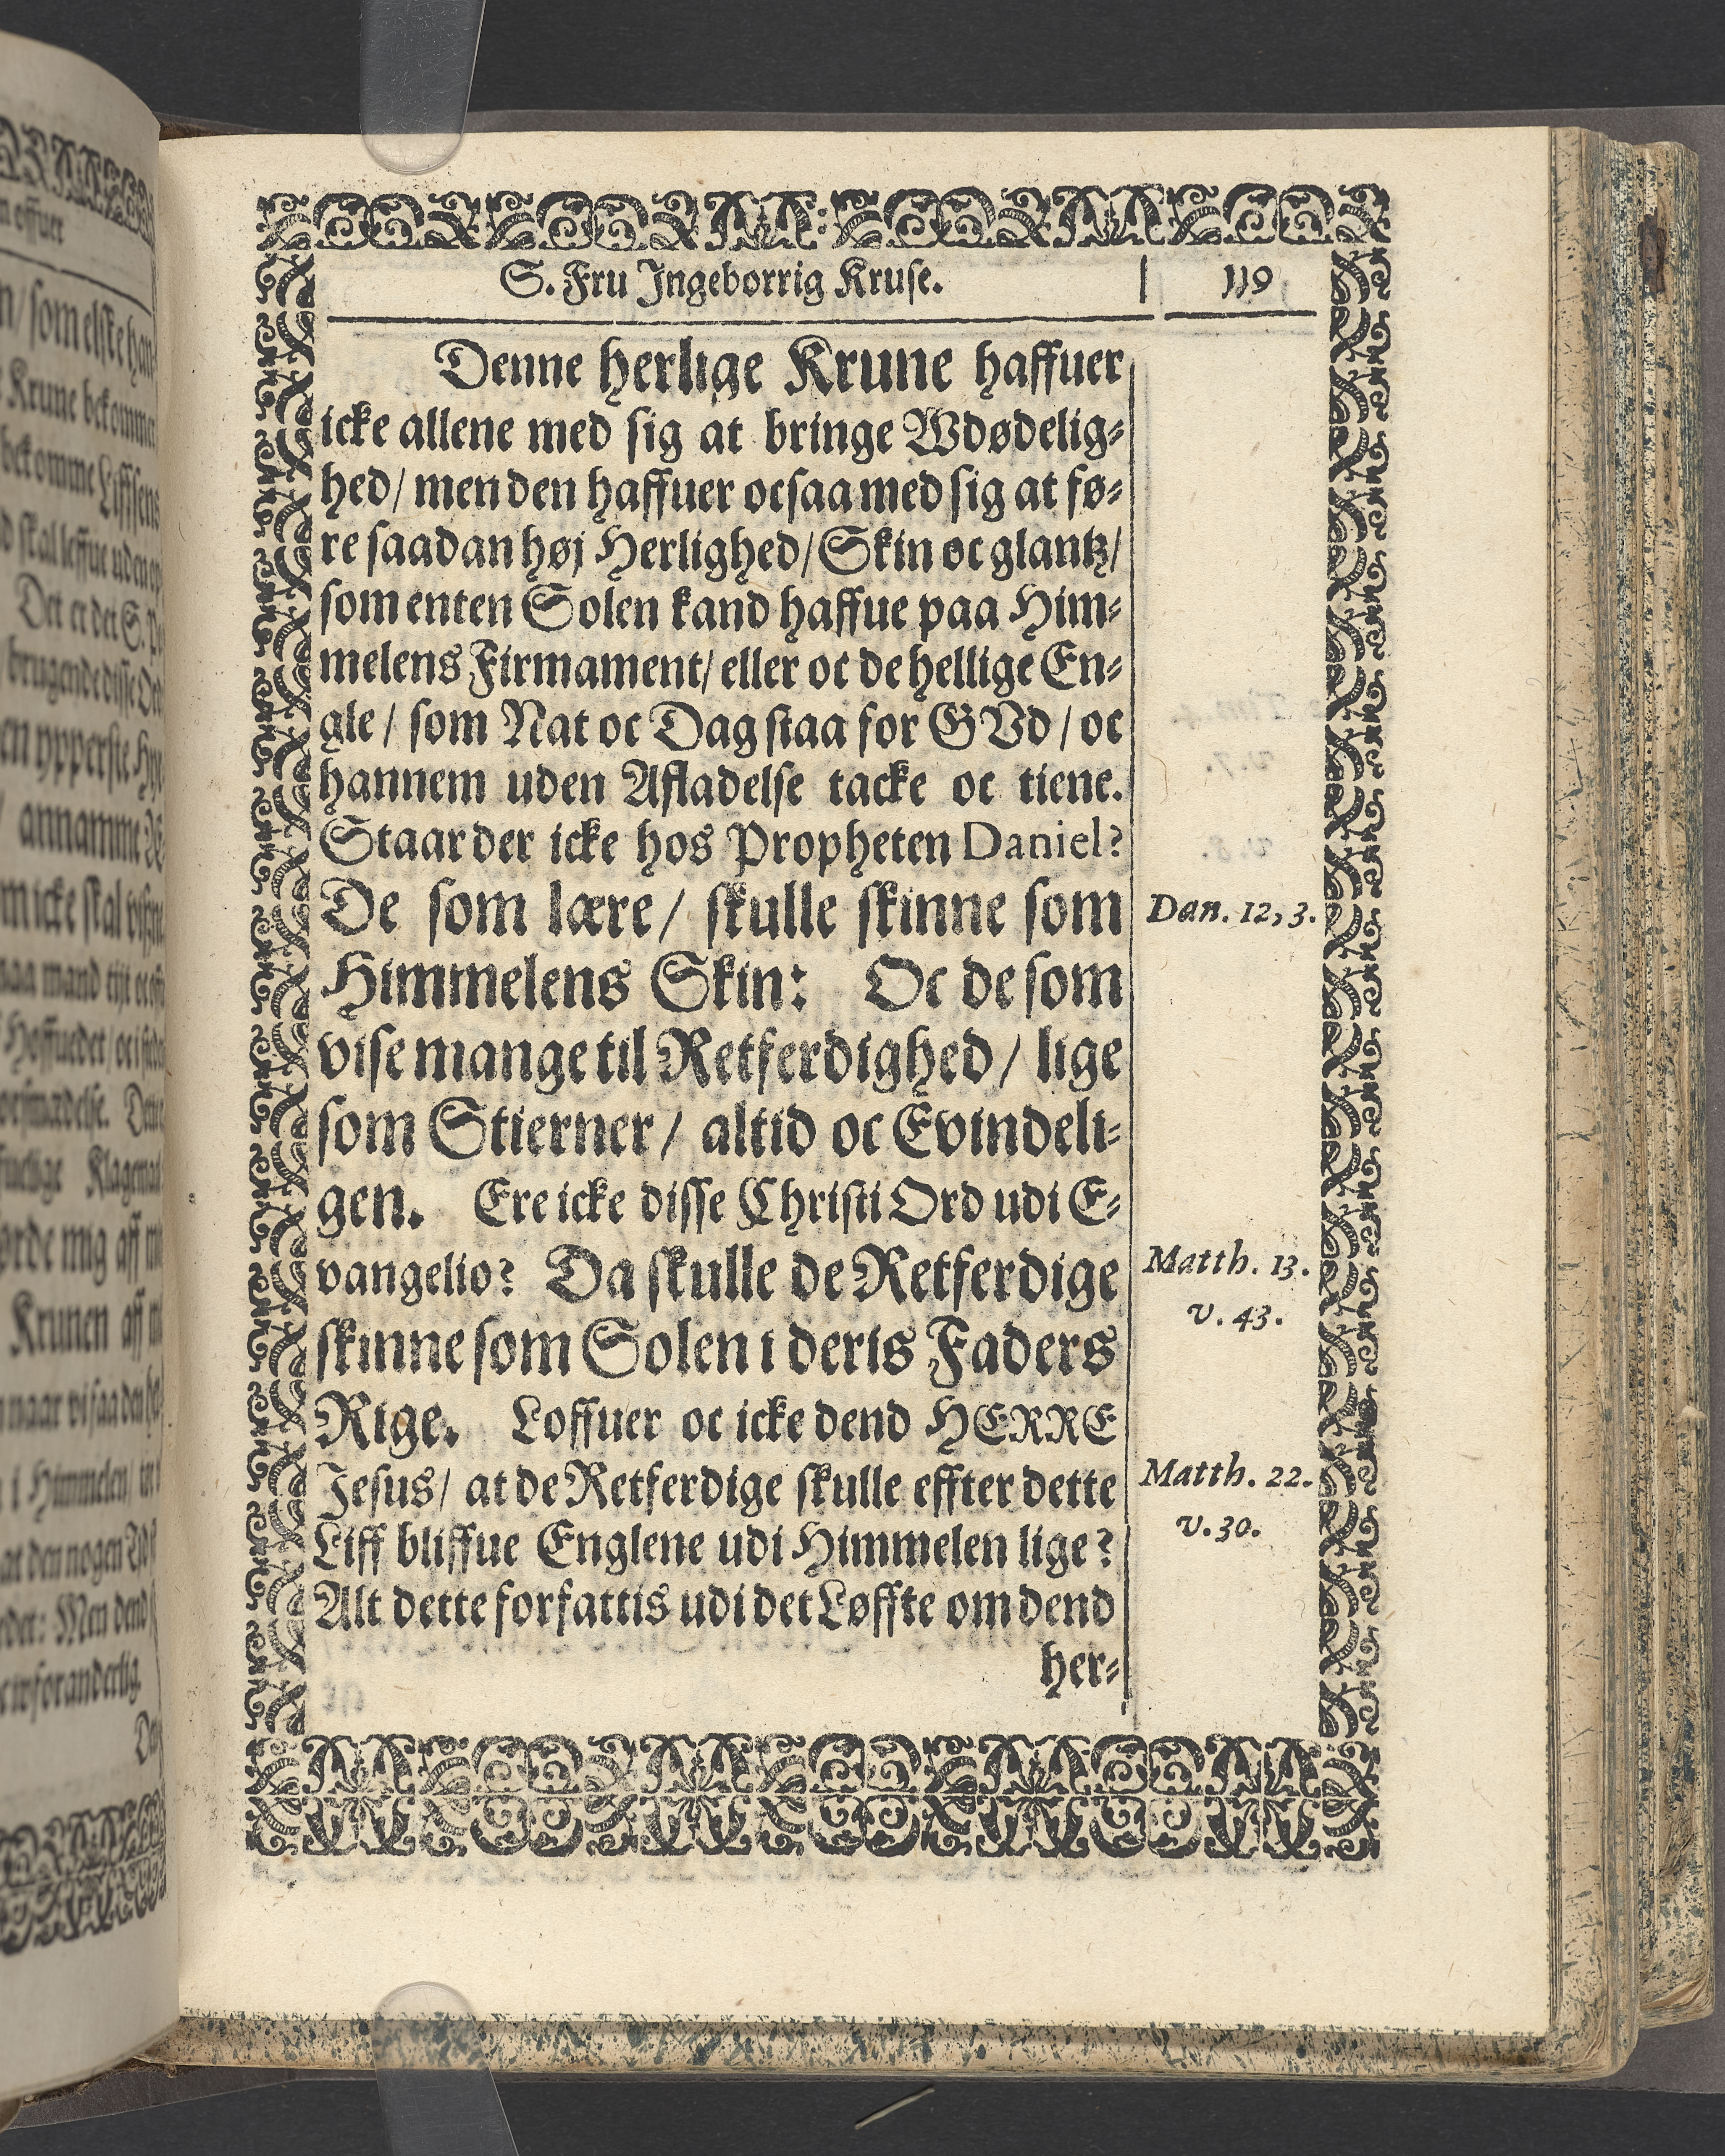 S. Fru Ingeborrig Kruse. 119
Denne herlige Krune haffuer
icke allene med sig at bringe Wdødelig-
hed/ men den haffuer ocsaa med sig at fø-
re saadan høj Herlighed/ Skin oc glantz/
som enten Solen kand haffue paa Him-
melens Firmament/ eller oc de hellige En-
gle/ som Nat oc Dag staa for GVd/ oc
hannem uden Afladelse tacke oc tiene.
Staar der icke hos Propheten Daniel?
De som lære/ skulle skinne som
Dan. 12, 3.
Himmelens Skin: Oc de som
vise mange til Retferdighed/ lige
som Stierner/ altid oc Evindeli-
gen. Ere icke disse Christi Ord udi E-
vangelio? Da skulle de Retferdige
Matth. 13.
v. 43.
skinne som Solen i deris Faders
Rige. Loffuer oc icke dend HERRE
Jesus/ at de Retferdige skulle effter dette
Matth. 22.
v. 30.
Liff bliffue Englene udi Himmelen lige?
Alt dette forfattis udi det Løffte om dend
her-